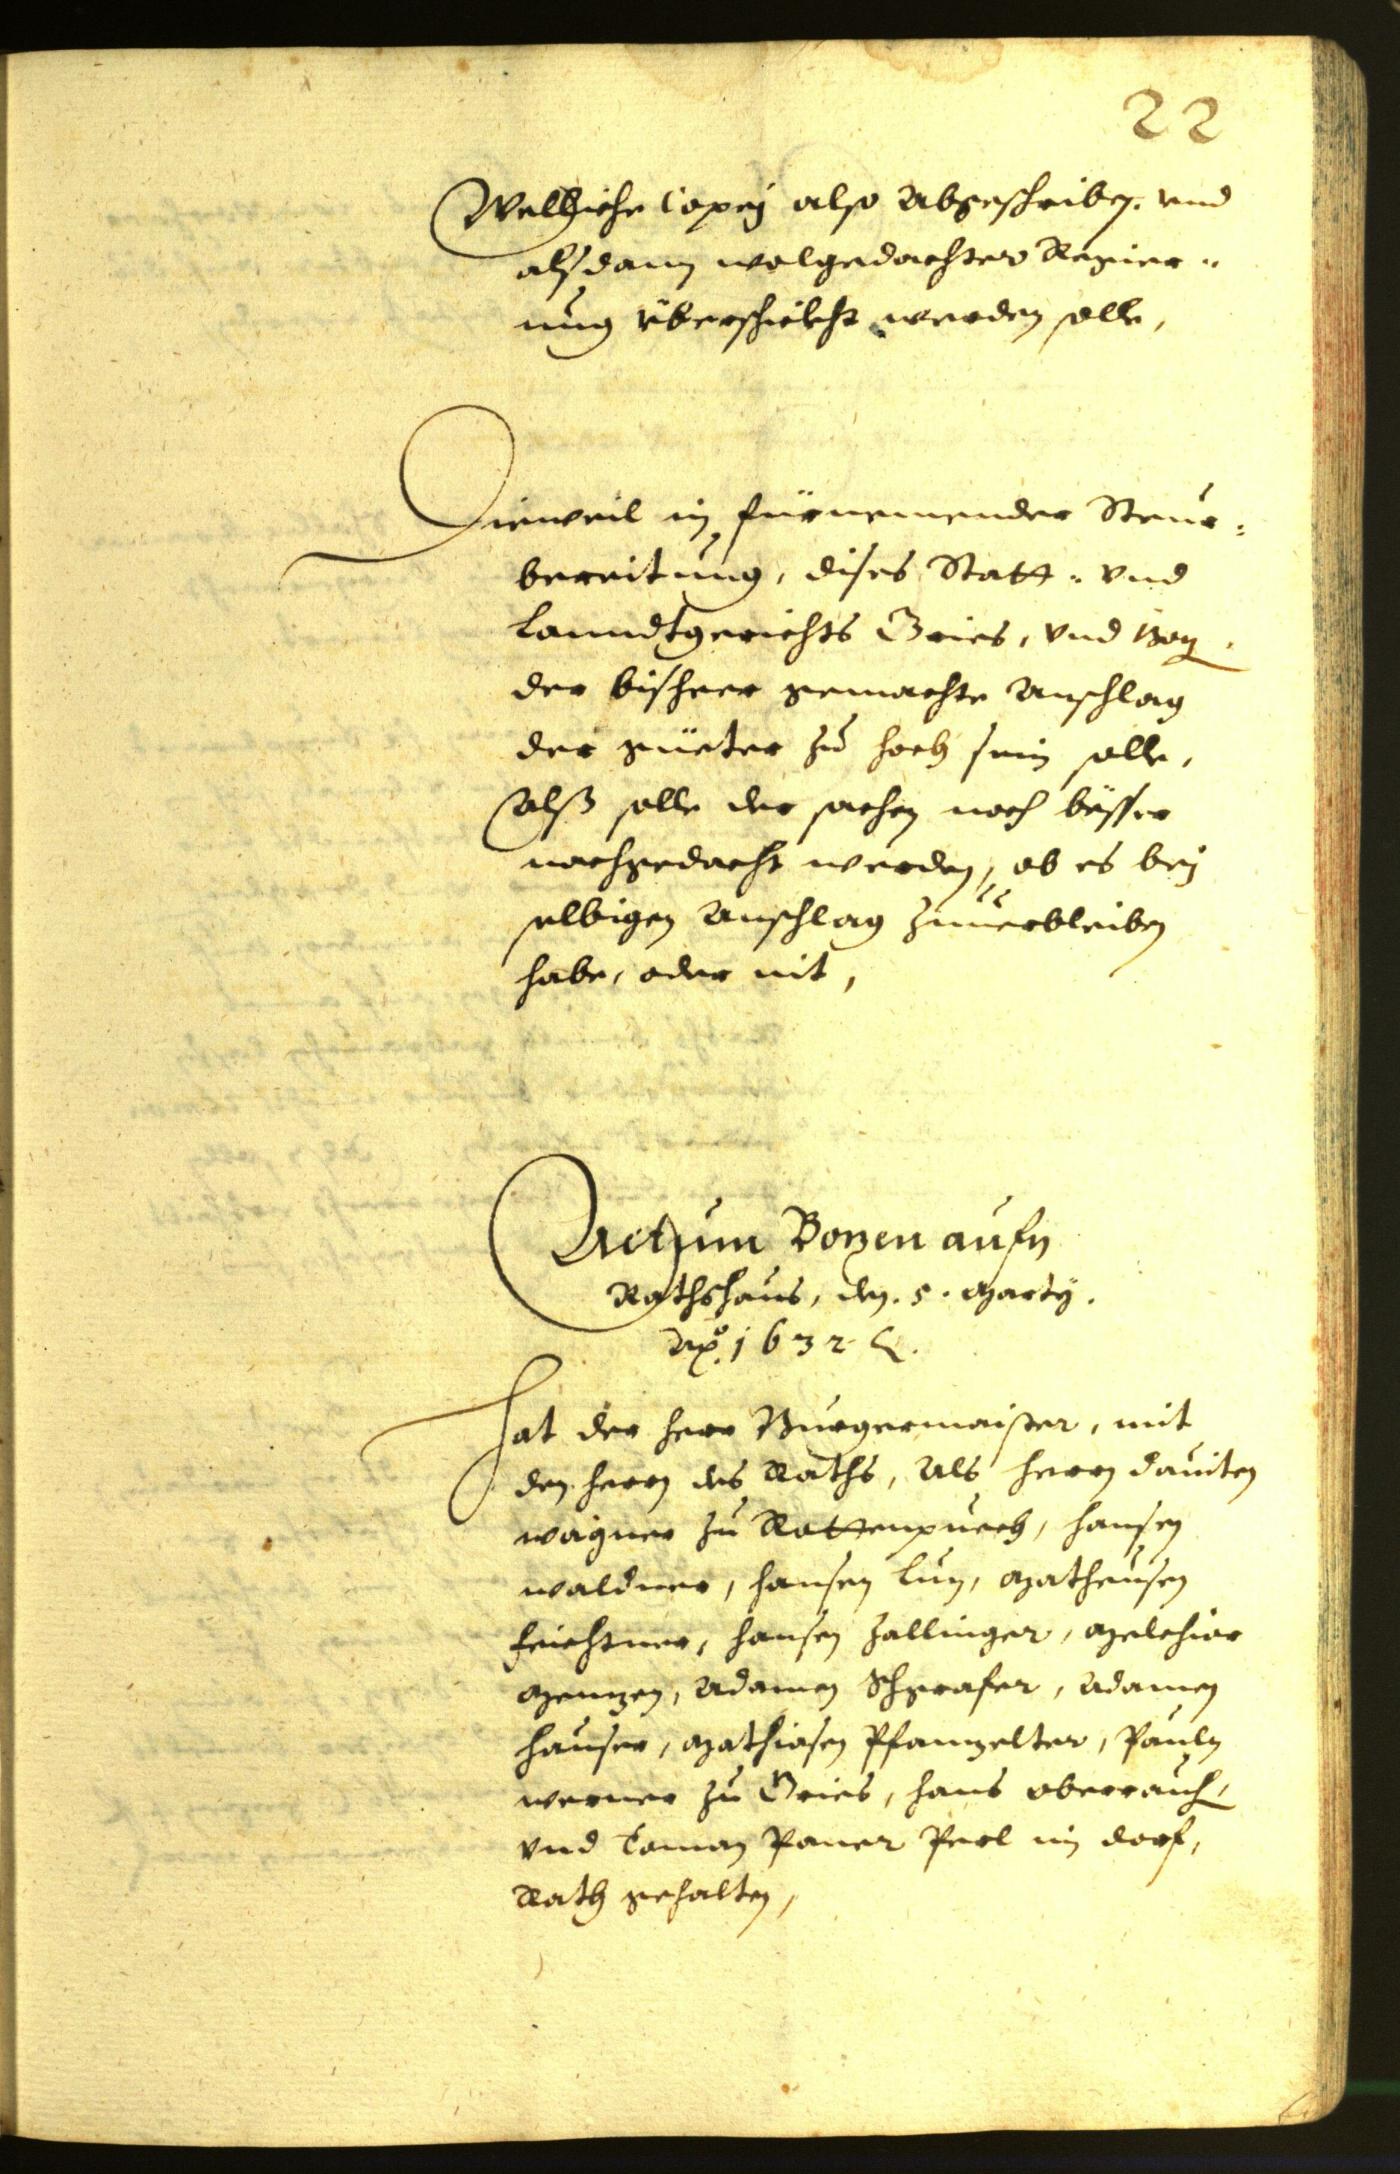 22
Welchiche Copeÿ also Abgeschriben. vnd
alßdann wolgedachter Regier¬
ung v̈berschickht werden solle,
Dieweil in fürnemender Steur¬
bereitung, dises Statt- vnd
Lanndtgerichts Gries, vnd Boz.
der bißheer gemachte Anschlag
der güeter zu hoch sein solle,
Alß solle der sachen noch bësser
nachgedacht werden, ob es beÿ
selbigen Anschlag zuuerbleiben
habe, oder nit,
Actum Bozen aufn
Rathshaus, den. 5. Martÿ.
Aõ. 1632
Hat der herr Burgermaister, mit
den herrn des Raths, Als herrn dauiten
wagner zu Rottenpuech, hansen
waldner, hansen Lun, Matheusen
feichtner, hansen Zallinger, Melchior
Menzen, Adamen Schgrafer, Adamen
hauser, Mathiasen Pfanzelter, Pauln
werner zu Gries, hans oberrauch,
vnd Toman Paner Perl im dorf,
Rath gehalten,